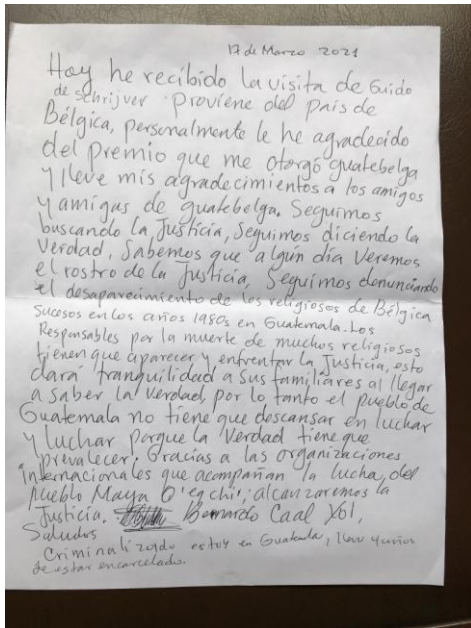 17 de Marzo 2021
Hoy he recibido la visita de Guido
de Schrijver proviene del pais de
Bélgica, personalmente le he agradecido
del premio que me otorgó guatebelga
y lleve mis agradecimientos a los amigos
y amigas de guatebelga. Seguimos
buscando la Justicia, Seguimos diciendo la
Verdad, Sabemos que algún día Veremos
el rostro de la Justicia, Seguimos denunciando
el desaparecimiento de los religiosos de Bélgica
Sucesos en los años 1980s en Guatemala. Los
Responsables por la muerte de muchos religiosos
tienen que aparecer y enfrentar la Justicia, esto
dará tranquilidad a sus familiares al llegar
a saber la verdad, por lo tanto el pueblo de
Guatemala no tiene que descansar en luchar
y luchar porque la Verdad tiene que
prevalecer. Gracias a las organizaciones
internacionales que acompañan la lucha, del
Pueblo Maya Q'eqchi', alcanzaremos la
Justicia. Bernardo Caal Xol,
Saludos
Criminalizado estoy en Guatemala, llevo 4 años
de estar encarcelado.